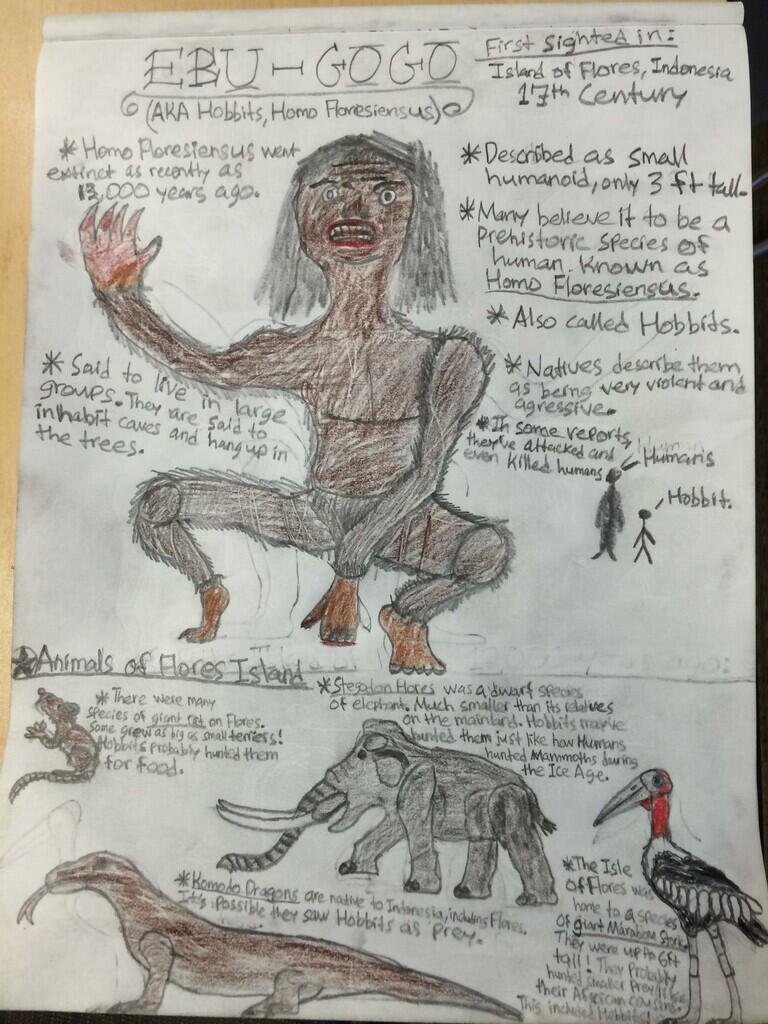 EBU-GOGO
(AKA Hobbits, Homo Floresiensus)
First Sighted in:
Island of Flores, Indonesia
17th Century
* Homo Floresiensus went
extinct as recently as
12,000 years ago.
* Described as small
humanoid, only 3 ft tall.
* Many believe it to be a
Prehistoric species of
human. Known as
Homo Floresiensus.
* Also called Hobbits.
* Said to live in large
groups. They are said to
inhabit caves and hang up in
the trees.
* Natives describe them
as being very violent and
agressive.
* In some reports,
they've attacked and
even killed humans
Humans
Hobbit.
Animals of Flores Island
* There were many
species of giant rat on Flores.
Some grew as big as small terriers!
Hobbits probably hunted them
for food.
* Stegodon Flores was a dwarf species
of elephant. Much smaller than its relatives
on the mainland. Hobbits may've
hunted them just like how Humans
hunted Mammoths during
the Ice Age.
* Komodo Dragons are native to Indonesia, including Flores.
It's possible they saw Hobbits as prey.
* The Isle
of Flores was
home to a species
of giant Marabou Stork
They were up to 6ft
tall! They Probably
hunted smaller Prey like
their African cousins.
This included Hobbits!